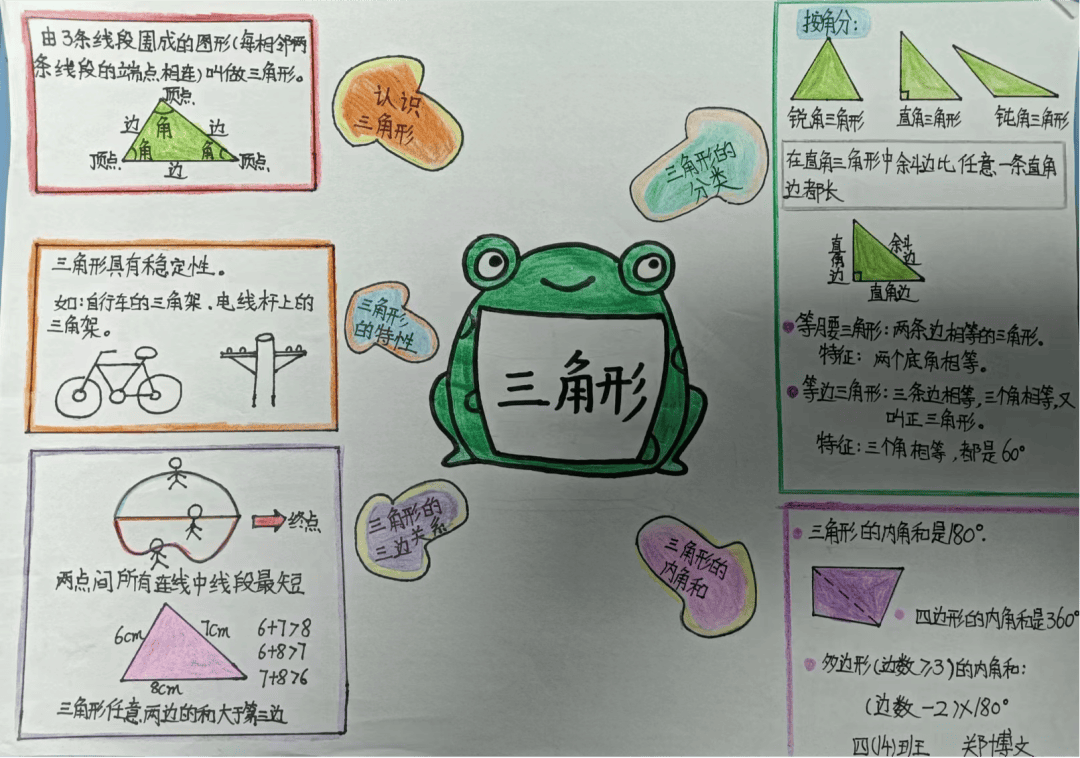 由3条线段围成的图形(每相邻两
条线段的端点相连)叫做三角形。
顶点
边
角
边
顶点
角
角
顶点
边
认识
三角形
三角形具有稳定性。
如:自行车的三角架、电线杆上的
三角架。
三角形
的特性
终点
两点间所有连线中线段最短
6cm
7cm
8cm
6+7>8
6+8>7
7+8>6
三角形任意两边的和大于第三边
三角形的
三边关系
三角形
三角形的
分类
按角分:
锐角三角形
直角三角形
钝角三角形
在直角三角形中斜边比任意一条直角
边都长
直角边
斜边
直角边
等腰三角形:两条边相等的三角形。
特征:两个底角相等。
等边三角形:三条边相等,三个角相等,又
叫正三角形。
特征:三个角相等,都是60°
三角形的
内角和
三角形的内角和是180°.
四边形的内角和是360°
多边形(边数≥3)的内角和:
(边数-2)×180°
四(14)班 郑博文